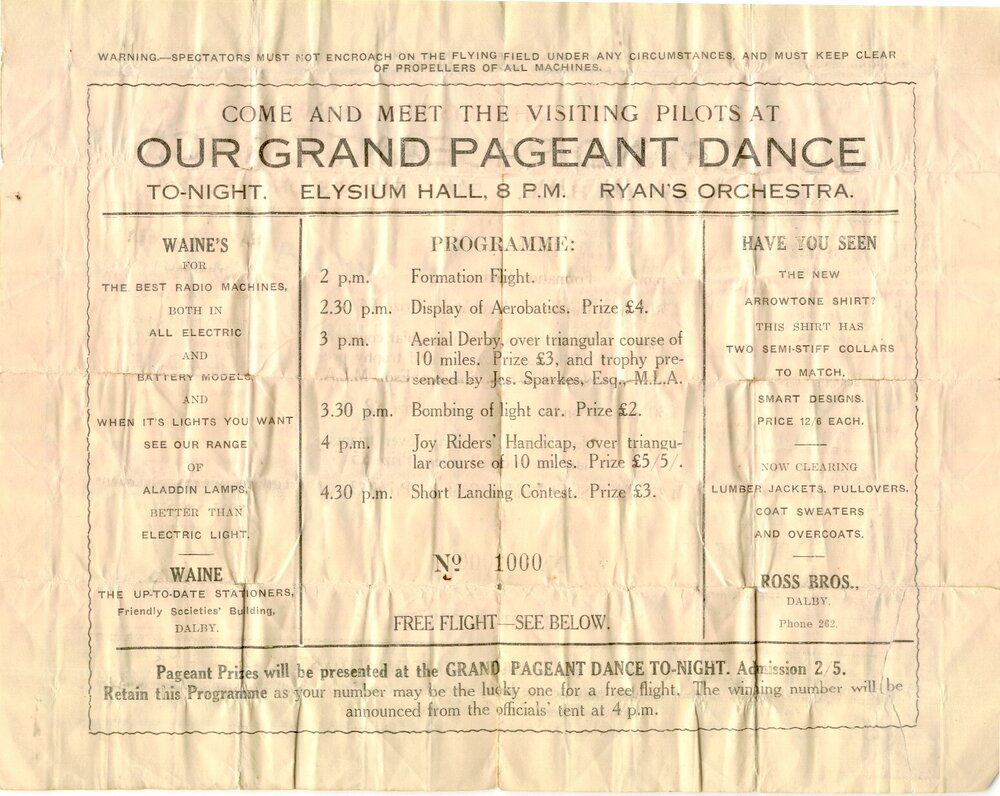 WARNING.—SPECTATORS MUST NOT ENCROACH ON THE FLYING FIELD UNDER ANY CIRCUMSTANCES, AND MUST KEEP CLEAR
OF PROPELLERS OF ALL MACHINES.
COME AND MEET THE VISITING PILOTS AT
OUR GRAND PAGEANT DANCE
TO-NIGHT. ELYSIUM HALL, 8 P.M. RYAN'S ORCHESTRA.
WAINE'S
FOR
THE BEST RADIO MACHINES,
BOTH IN
ALL ELECTRIC
AND
BATTERY MODELS,
AND
WHEN IT'S LIGHTS YOU WANT
SEE OUR RANGE
OF
ALADDIN LAMPS,
BETTER THAN
ELECTRIC LIGHT.
WAINE
THE UP-TO-DATE STATIONERS,
Friendly Societies' Building,
DALBY.
PROGRAMME:
2 p.m. Formation Flight.
2.30 p.m. Display of Aerobatics. Prize £4.
3 p.m. Aerial Derby, over triangular course of
10 miles. Prize £3, and trophy pre-
sented by Jas. Sparkes, Esq., M.L.A.
3.30 p.m. Bombing of light car. Prize £2.
4 p.m. Joy Riders' Handicap, over triangu-
lar course of 10 miles. Prize £5/5/.
4.30 p.m. Short Landing Contest. Prize £3.
No 1000
FREE FLIGHT—SEE BELOW.
HAVE YOU SEEN
THE NEW
ARROWTONE SHIRT?
THIS SHIRT HAS
TWO SEMI-STIFF COLLARS
TO MATCH,
SMART DESIGNS.
PRICE 12/6 EACH.
NOW CLEARING
LUMBER JACKETS, PULLOVERS,
COAT SWEATERS
AND OVERCOATS.
ROSS BROS.,
DALBY.
Phone 262.
Pageant Prizes will be presented at the GRAND PAGEANT DANCE TO-NIGHT. Admission 2/5.
Retain this Programme as your number may be the lucky one for a free flight. The winning number will be
announced from the officials' tent at 4 p.m.